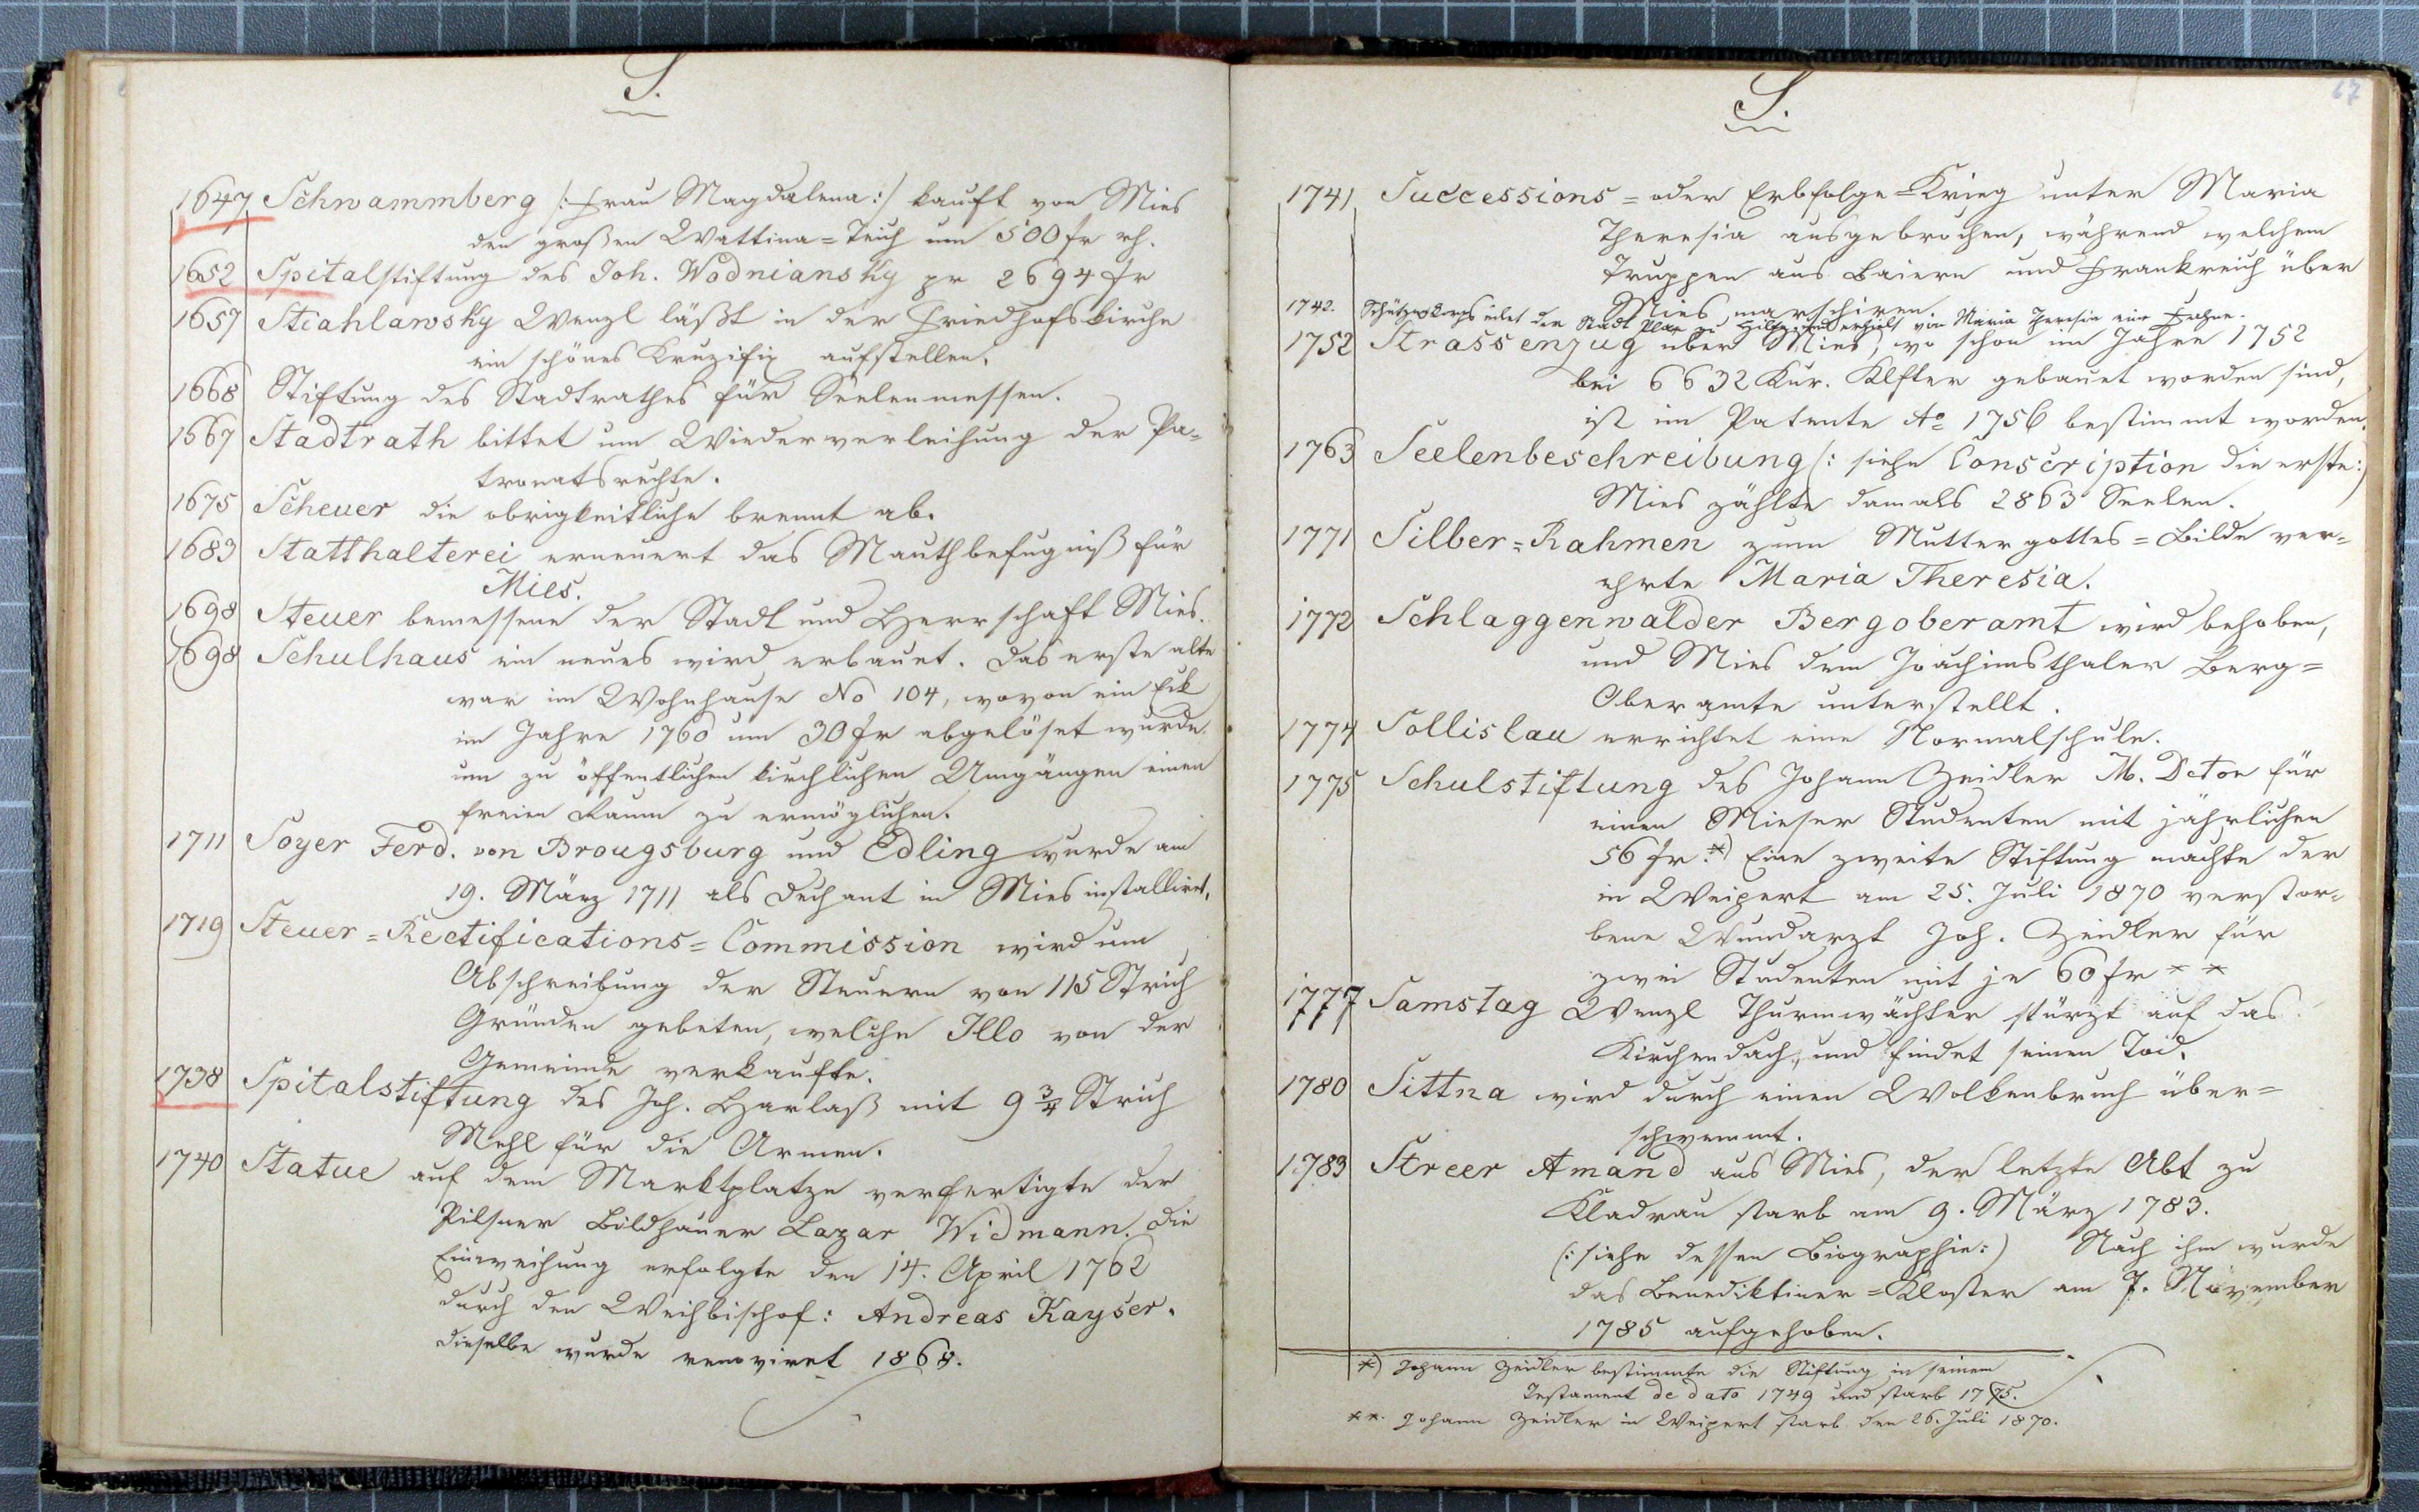 S.
1647 Schwammberg /: Frau Magdalena :/ kauft von Mies
den großen Wattina=Teich um 500 fr rh.
1652 Spitalstiftung des Joh. Wodniansky pr 2694 fr
1657 Stiahlawsky Wenzl läßt in der Friedhofskirche
ein schönes Kruzifix aufstellen.
1668 Stiftung des Stadtrathes für Seelenmessen.
1667 Stadtrath bittet um Wiederverleihung der Pa=
tronatsrechte.
1675 Scheuer die obrigkeitliche brennt ab.
1683 Statthalterei erneuert das Mauthbefugniß für
Mies.
1698 Steuer bemessene der Stadt und Herrschaft Mies.
1698 Schulhaus ein neues wird erbauet. Das erste alte
war im Wohnhause No 104, wovon ein Eck
im Jahre 1760 um 30 fr abgelöset wurde
um zu öffentlichen kirchlichen Umgängen einen
freien Raum zu ermöglichen.
1711 Soyer Ferd. von Brougsburg und Edling wurde am
19. März 1711 als Dechant in Mies installiret.
1719 Steuer=Rectifications=Commission wird um
Abschreibung der Steuern von 115 Strich
Gründen gebeten, welche Illo von der
Gemeinde verkaufte.
1738 Spitalstiftung des Joh. Harlaß mit 9 3/4 Strich
Mehl für die Armen.
1740 Statue auf dem Marktplatze verfertigte der
Pilsner Bildhauer Lazar Widmann. Die
Einweihung erfolgte den 14. April 1762
durch den Weihbischof: Andreas Kayser.
dieselbe wurde renoviret 1868.
S.
67
1741 Successions=oder Erbfolge=Krieg unter Maria
Theresia ausgebrochen, während welchem
Truppen aus Baiern und Frankreich über
Mies marschiren.
1742. Schützenkorps eilet der Stadt Plan zu Hilfe und erhielt von Maria Theresia eine Fahne.
1752 Strassenzug über Mies, wo schon im Jahre 1752
bei 6632 Kur. Klfter gebauet worden sind,
ist im Patente Ao 1756 bestimmt worden.
1763 Seelenbeschreibung /: siehe Conscription die erste :/
Mies zählte damals 2863 Seelen.
1771 Silber=Rahmen zum Muttergottes=Bilde ver=
ehrte Maria Theresia.
1772 Schlaggenwalder Bergoberamt wird behoben,
und Mies dem Joachimsthaler Berg=
Oberamte unterstellt.
1774 Sollislau errichtet eine Normalschule.
1775 Schulstiftung des Johann Zeidler M. Dcton für
einen Mieser Studenten mit jährlichen
56 fr. *) Eine zweite Stiftung machte der
in Weipert am 25. Juli 1870 verstor=
bene Wundarzt Joh. Zeidler für
zwei Studenten mit je 60 fr * *
1777 Samstag Wenzl Thurmwächter stürzt auf das
Kirchendach, und findet seinen Tod.
1780 Sittna wird durch einen Wolkenbruch über=
schwemmt.
1783 Streer Amand aus Mies, der letzte Abt zu
Kladrau starb am 9. März 1783.
(: siehe dessen Biographie :) Nach ihm wurde
das Benediktiner=Kloster am 7. November
1785 aufgehoben.
*) Johann Zeidler bestimmte die Stiftung in seinem
Testament de dato 1749 und starb 1775.
**. Johann Zeidler in Weipert starb den 26. Juli 1870.